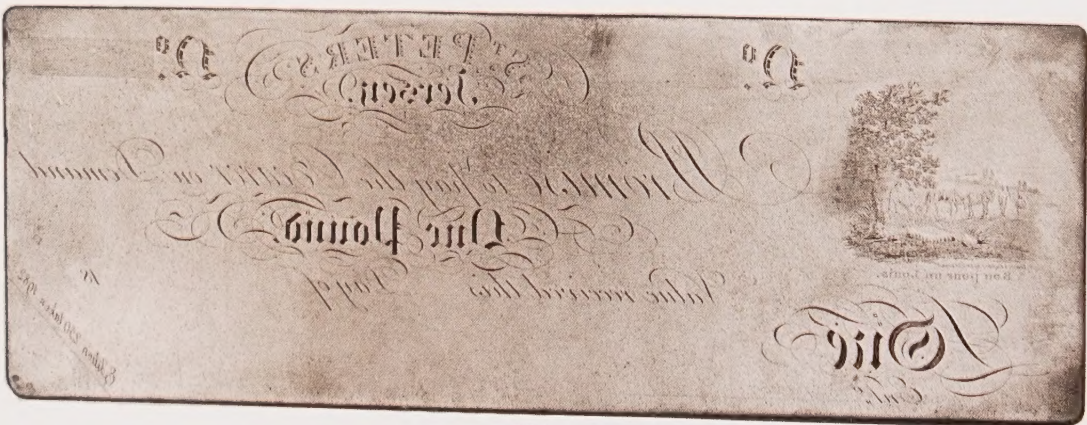 Nº Sᵗ PETERS Nº
Jersey.
Promise to pay the Bearer on Demand
One Pound.
Value received this Day of
18
Bon pour un Louis.
£One
Entᵈ
Edition 250 taken